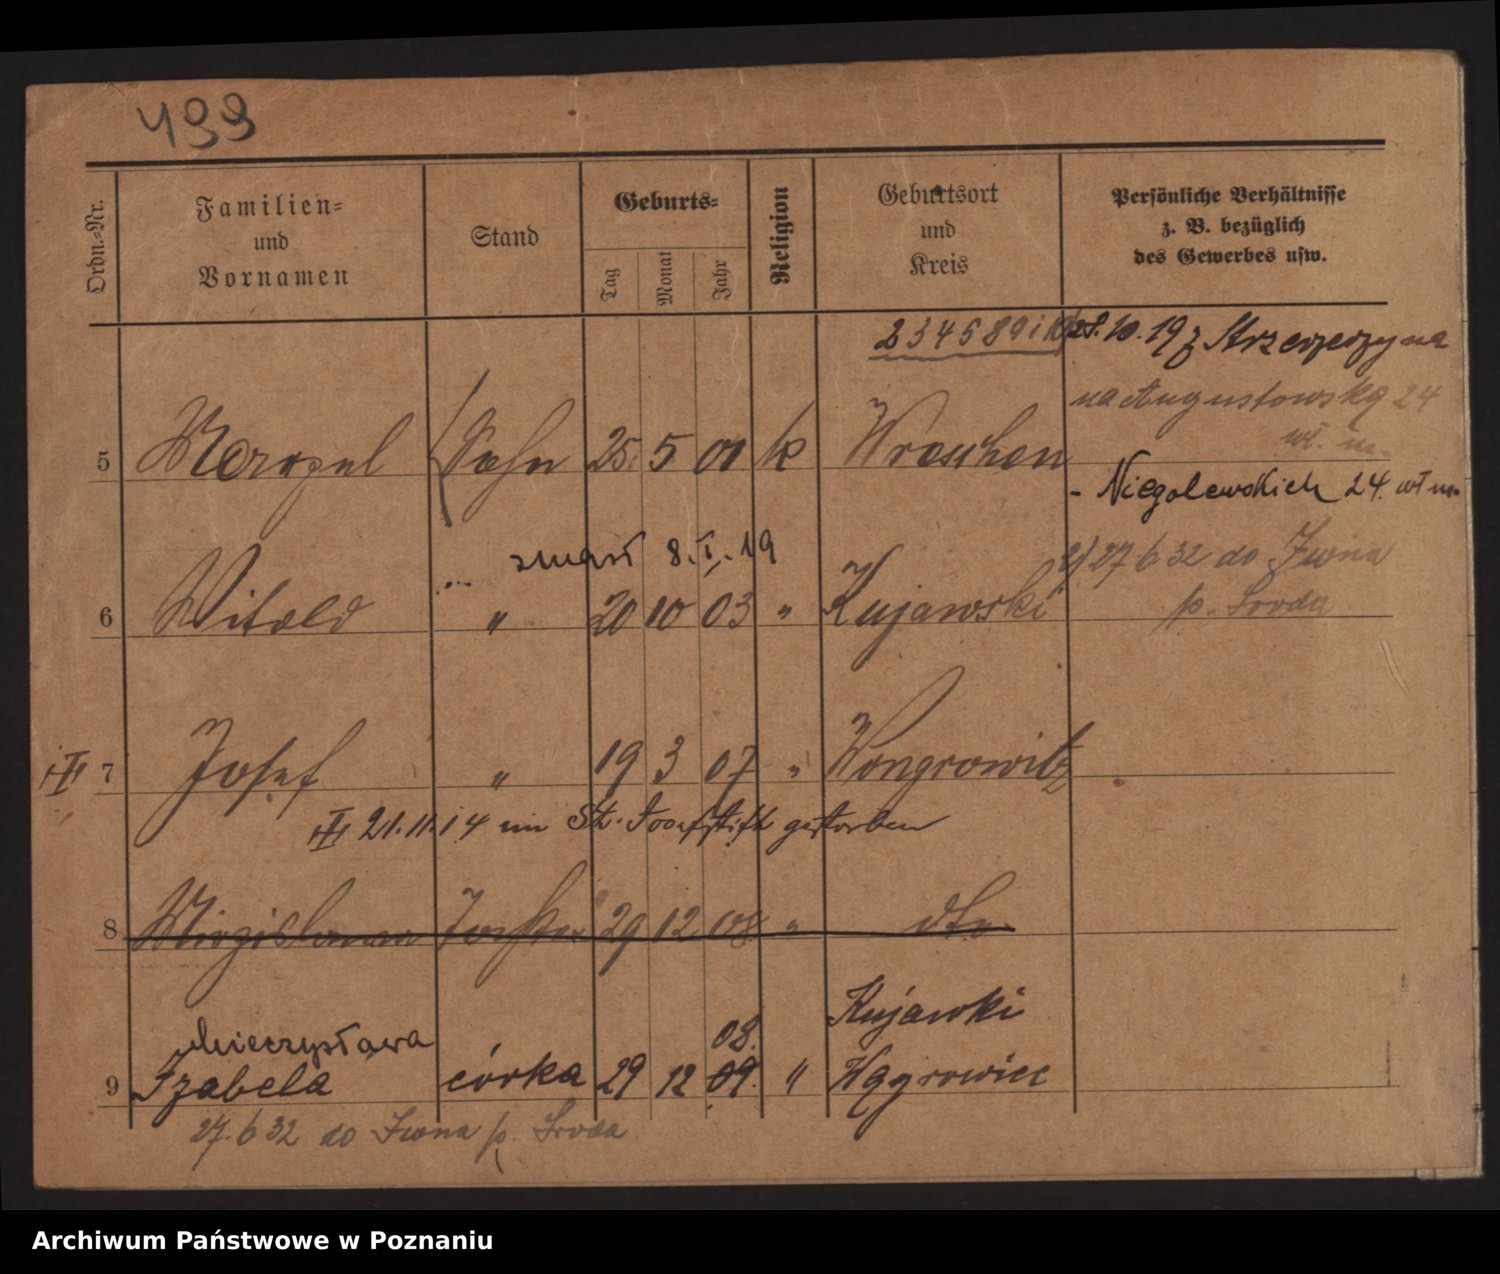 499
Ordn.-Nr.
Familien-
und
Vornamen
Stand
Geburts-
Tag
Monat
Jahr
Religion
Geburtsort
und
Kreis
Persönliche Verhältnisse
z. B. bezüglich
des Gewerbes usw.
2 3 4 5 8 9 i 10 28.10.19 z Strzerzerzyna
na Augustowską 24
wł. m.
5 Sohn 25. 5 01 k Wreschen
- Niegolewskich 24. wł m.
zmarł 8.I.19
27 6 32 do Iwna
6 Witold " 20 10 03 " Kujawski p. Sroda
7 Josef " 19 3 07 " Wongrowitz
21.11.14 im St. Josefstift gestorben
8 Tochter 29 12 08 " dto.
Mieczysława 08. Kujawki
9 Izabela córka 29 12 09. " Wągrowiec
27. 6 32 do Iwna p. Sroda
Archiwum Państwowe w Poznaniu